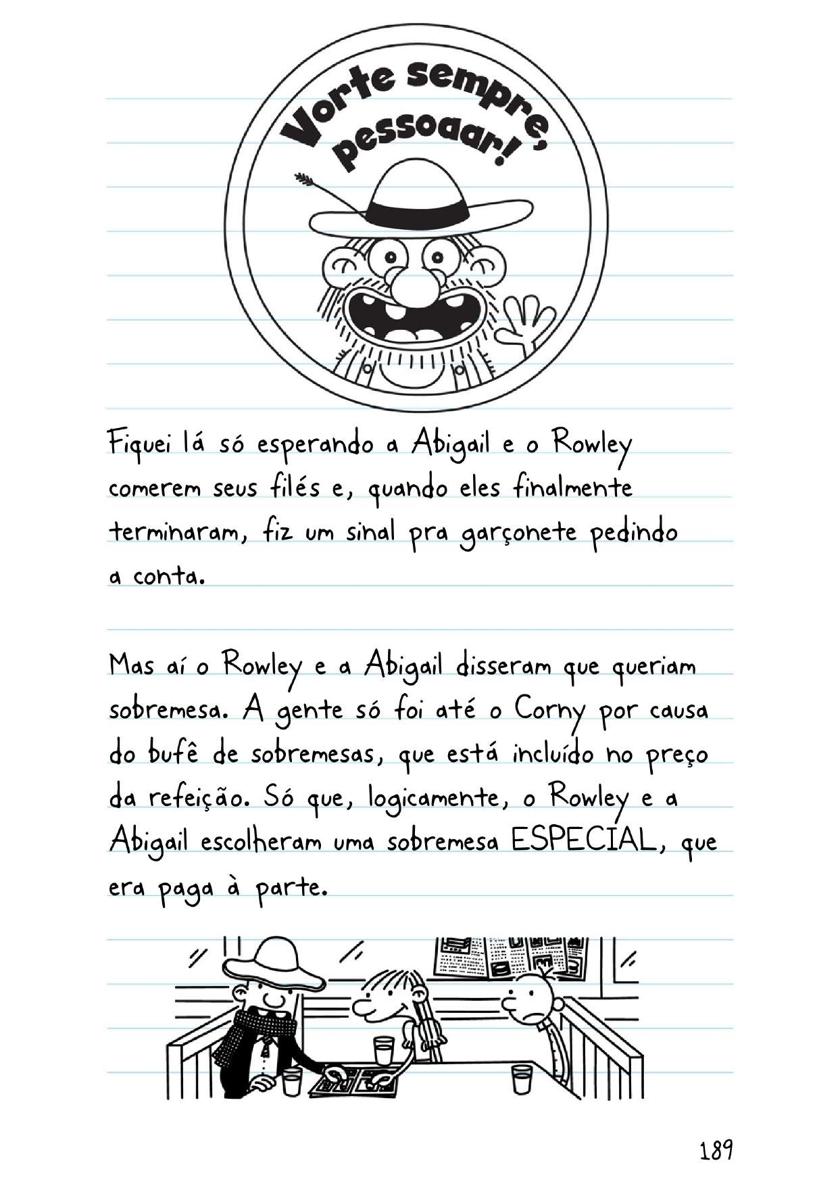 Vorte sempre,
pessoaar!
Fiquei lá só esperando a Abigail e o Rowley
comerem seus filés e, quando eles finalmente
terminaram, fiz um sinal pra garçonete pedindo
a conta.
Mas aí o Rowley e a Abigail disseram que queriam
sobremesa. A gente só foi até o Corny por causa
do bufê de sobremesas, que está incluído no preço
da refeição. Só que, logicamente, o Rowley e a
Abigail escolheram uma sobremesa ESPECIAL, que
era paga à parte.
189